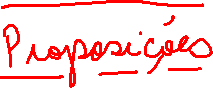 Proposições